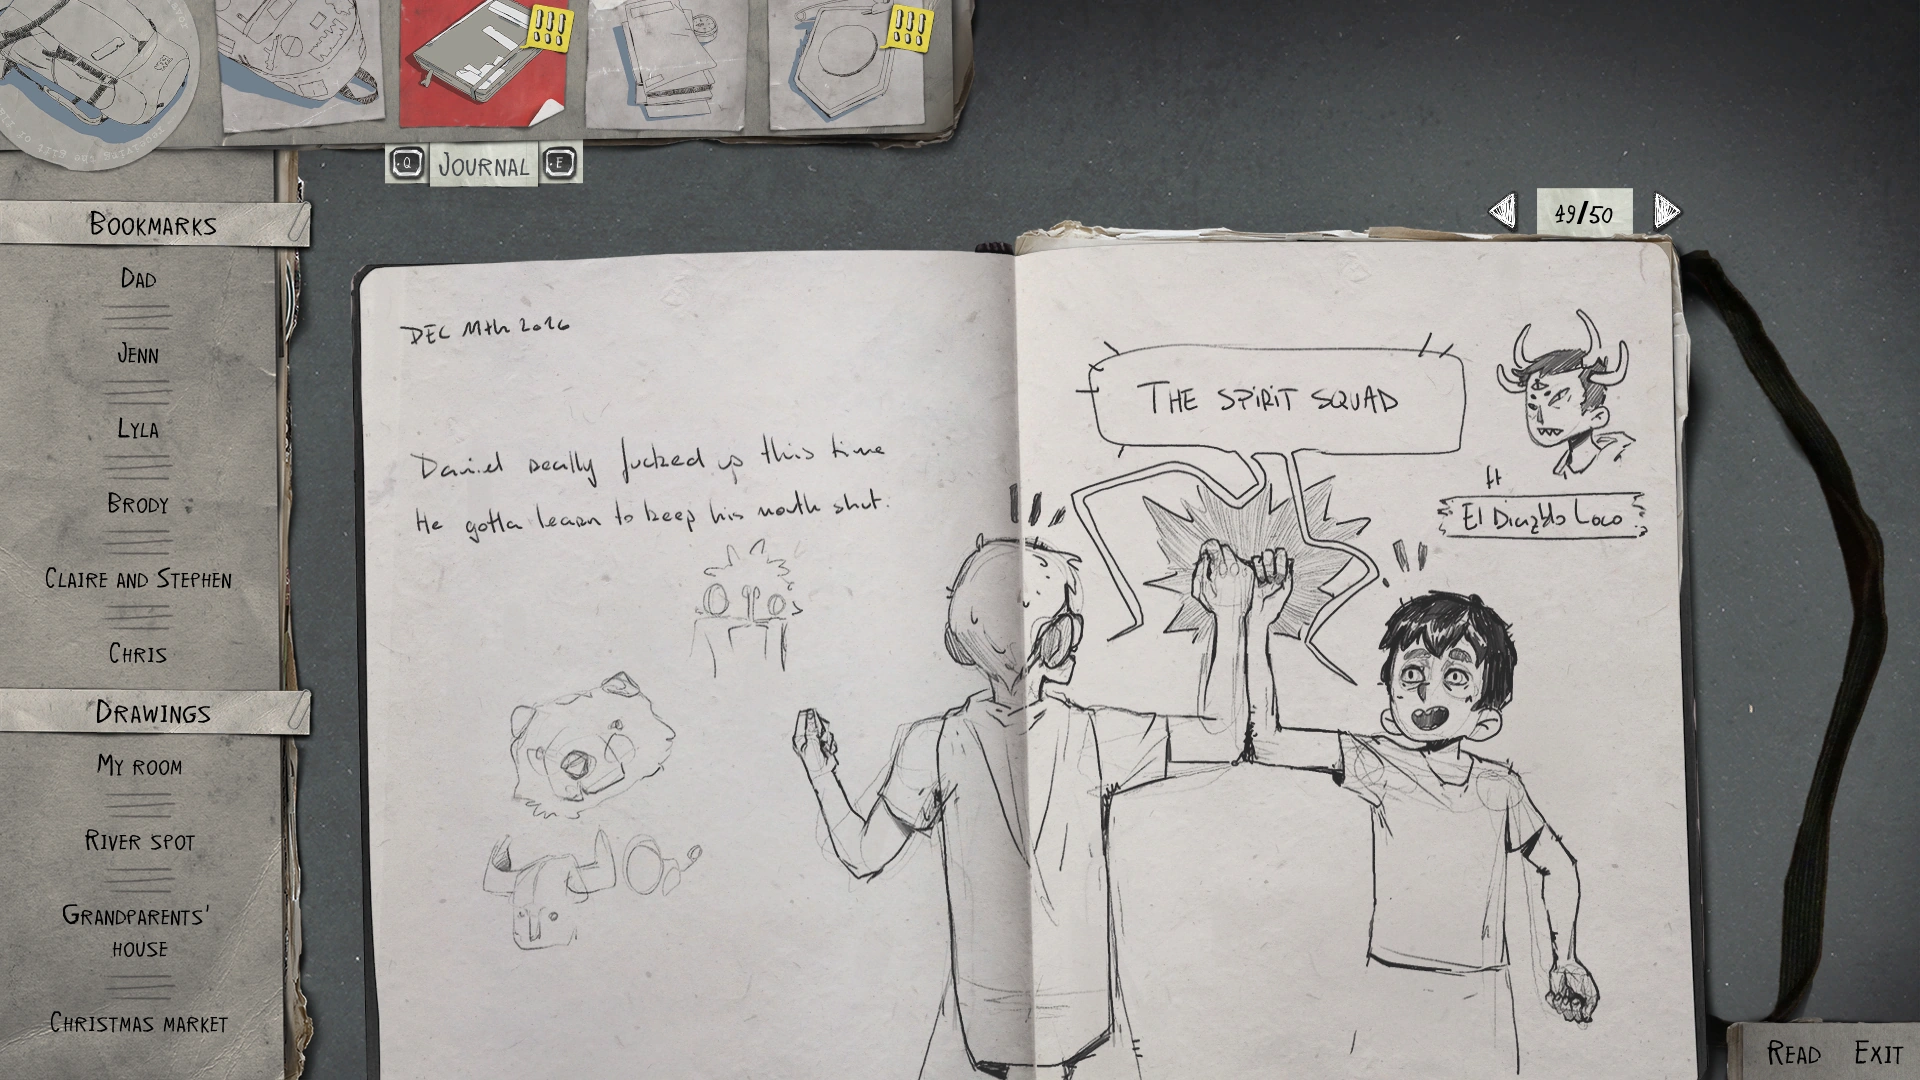 Q JOURNAL E
49/50
BOOKMARKS
DAD
JENN
LYLA
BRODY
CLAIRE AND STEPHEN
CHRIS
DRAWINGS
MY ROOM
RIVER SPOT
GRANDPARENTS'
HOUSE
CHRISTMAS MARKET
DEC 11th 2016
Daniel really fucked up this time
He gotta learn to keep his mouth shut.
THE SPIRIT SQUAD
ft
El Diablo Loco
READ EXIT